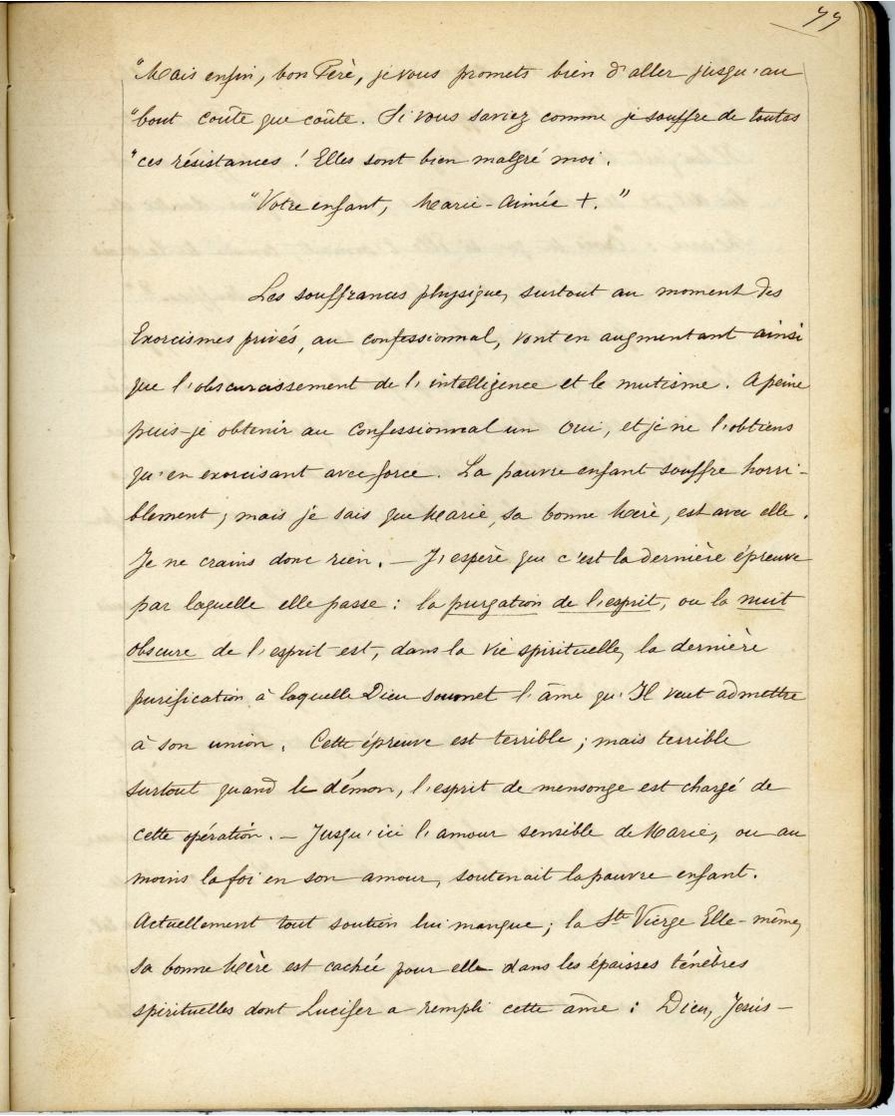 77
"Mais enfin, bon Père, je vous promets bien d'aller jusqu'au
"bout coûte que coûte. Si vous saviez comme je souffre de toutes
"ces résistances ! Elles sont bien malgré moi.
"Votre enfant, Marie-Aimée +."
Les souffrances physiques, surtout au moment des
Exorcismes privés, au confessionnal, vont en augmentant ainsi
que l'obscurcissement de l'intelligence et le mutisme. A peine
puis-je obtenir au Confessionnal un Oui, et je ne l'obtiens
qu'en exorcisant avec force. La pauvre enfant souffre horri-
blement ; mais je sais que Marie, sa bonne Mère, est avec elle.
Je ne crains donc rien. — J'espère que c'est la dernière épreuve
par laquelle elle passe : la purgation de l'esprit, ou la nuit
obscure de l'esprit est, dans la vie spirituelle, la dernière
purification à laquelle Dieu soumet l'âme qu'Il veut admettre
à son union. Cette épreuve est terrible ; mais terrible
surtout quand le démon, l'esprit de mensonge est chargé de
cette opération. — Jusqu'ici l'amour sensible de Marie, ou au
moins la foi en son amour, soutenait la pauvre enfant.
Actuellement tout soutien lui manque ; la Ste Vierge Elle-même,
sa bonne Mère est cachée pour elle dans les épaisses ténèbres
spirituelles dont Lucifer a rempli cette âme : Dieu, Jésus-